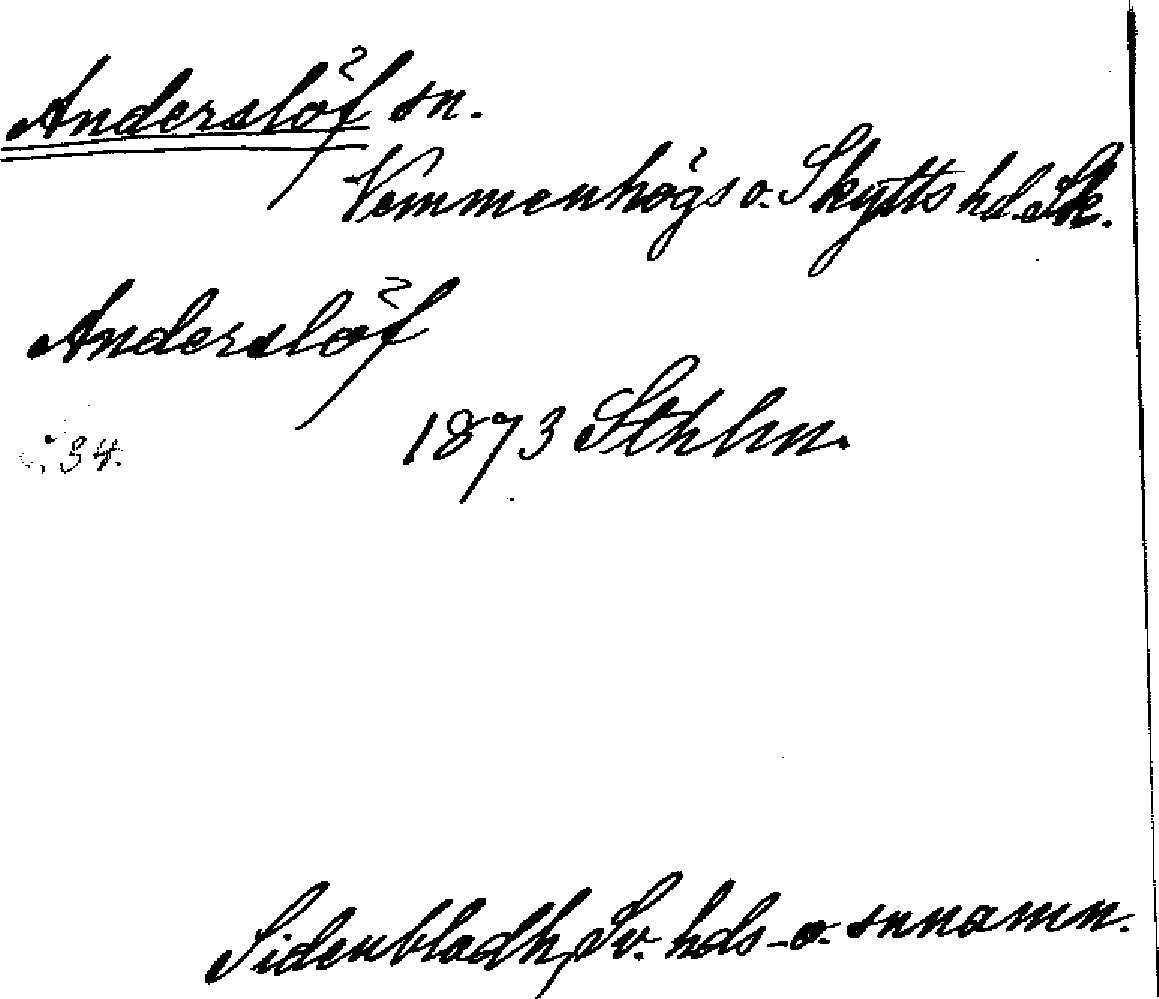 Anderslöf sn.
Vemmenhögs o. Skytts hd. Sk.
Anderslöf
1873 Sthlm.
s. 34.
Sidenbladh, Sv. hds- o. snnamn.